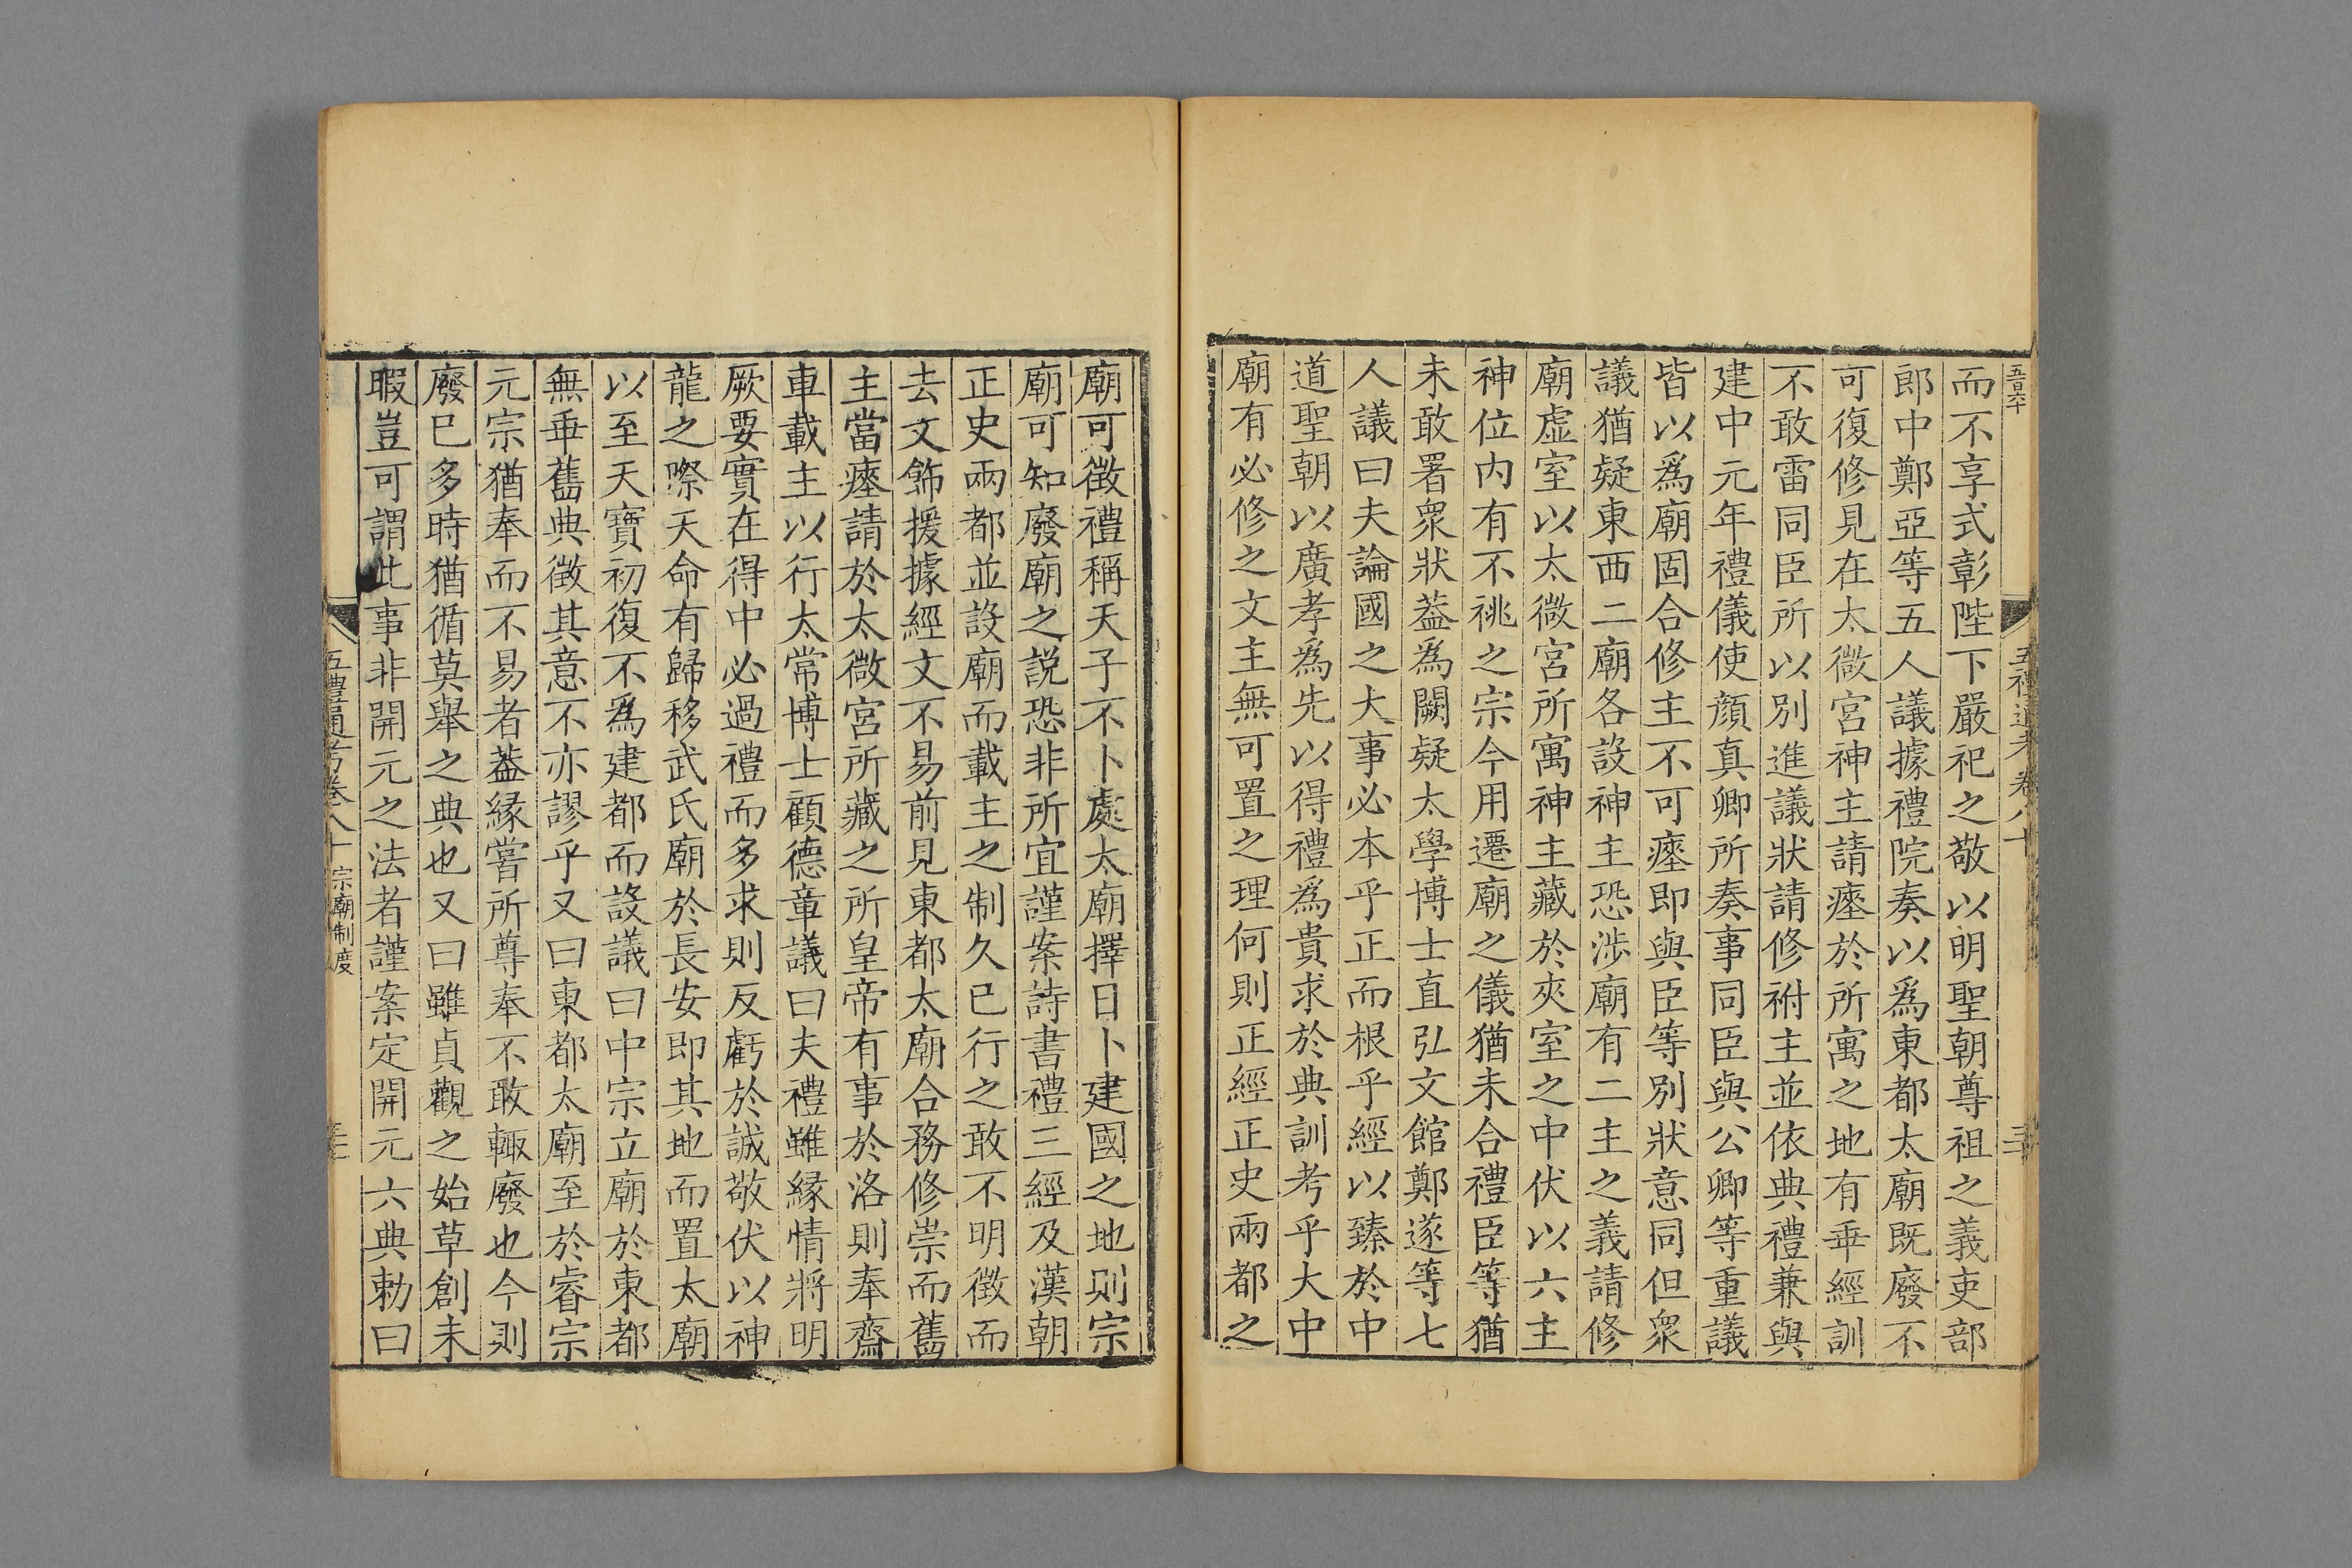 而不享式彰陛下嚴祀之敬以明聖朝尊祖之義吏部
郎中鄭亞等五人議據禮院奏以爲東都太廟既廢不
可復修見在太微宮神主請瘞於所寓之地有乖經訓
不敢雷同臣所以別進議狀請修祔主並依典禮兼與
建中元年禮儀使顔真卿所奏事同臣與公卿等重議
皆以爲廟固合修主不可瘞即與臣等別狀意同但衆
議猶疑東西二廟各設神主恐涉廟有二主之義請修
廟虛室以太微宮所寓神主藏於夾室之中伏以六主
神位内有不祧之宗今用遷廟之儀猶未合禮臣等猶
未敢署衆狀葢爲闕疑太學博士直弘文館鄭遂等七
人議曰夫論國之大事必本乎正而根乎經以臻於中
道聖朝以廣孝爲先以得禮爲貴求於典訓考乎大中
廟有必修之文主無可置之理何則正經正史兩都之
廟可徵禮稱天子不卜處太廟擇日卜建國之地则宗
廟可知廢廟之説恐非所宜謹案詩書禮三經及漢朝
正史兩都並設廟而載主之制久已行之敢不明徵而
去文飾援據經文不易前見東都太廟合務修崇而舊
主當瘞請於太微宮所藏之所皇帝有事於洛則奉齋
車載主以行太常博士顧德章議曰夫禮雖緣情將明
厥要實在得中必過禮而多求則反虧於誠敬伏以神
龍之際天命有歸移武氏廟於長安即其地而置太廟
以至天寶初復不爲建都而設議曰中宗立廟於東都
無乖舊典徵其意不亦謬乎又曰東都太廟至於睿宗
元宗猶奉而不易者葢緣嘗所尊奉不敢輙廢也今則
廢已多時猶循莫舉之典也又曰雖貞觀之始草創未
暇豈可謂此事非開元之法者謹案定開元六典勅曰
五禮通考卷八十 宗廟制度